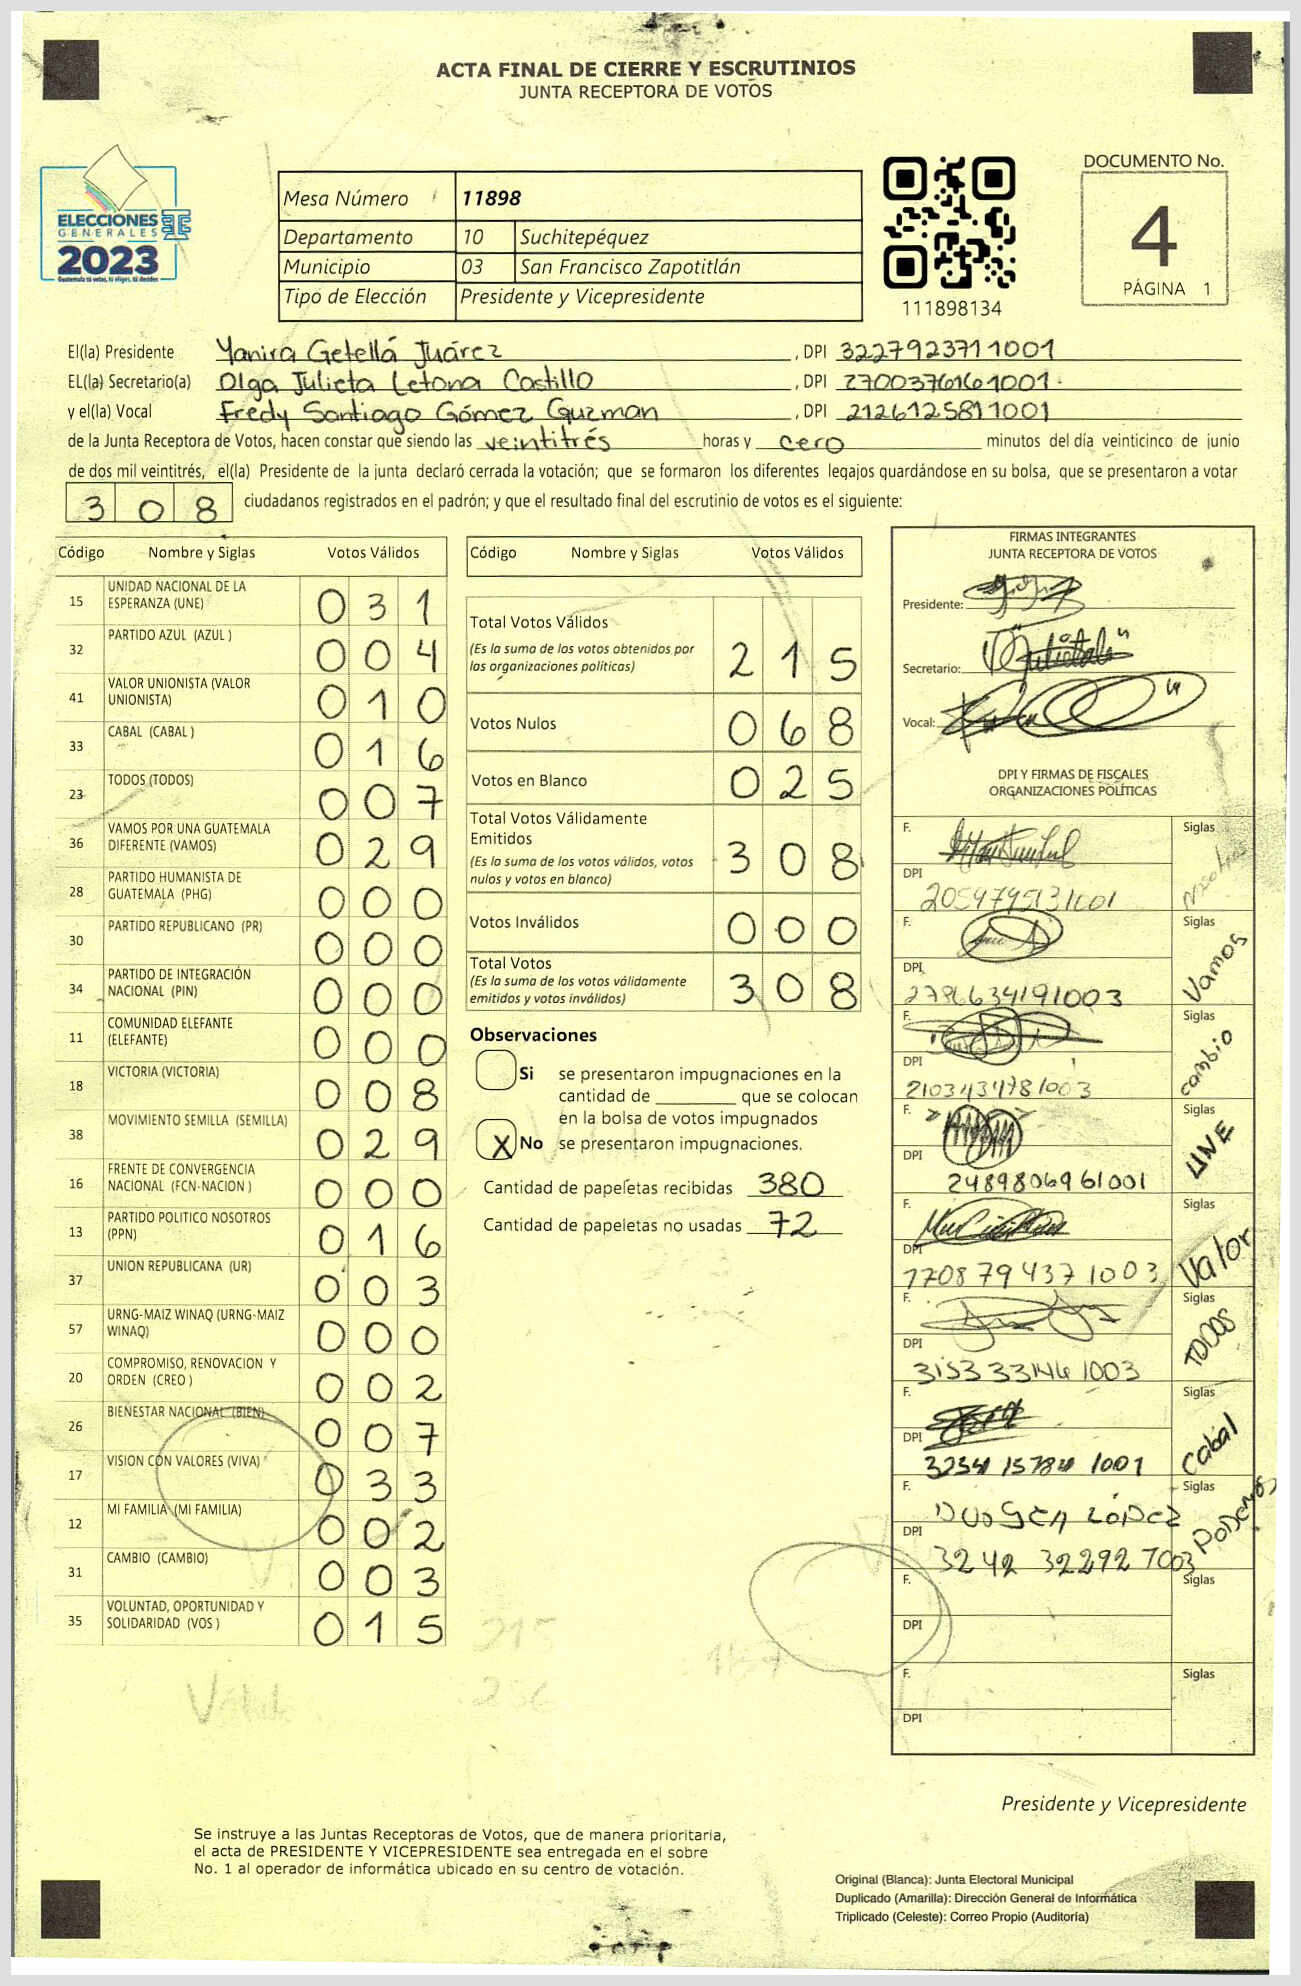 ACTA FINAL DE CIERRE Y ESCRUTINIOS
JUNTA RECEPTORA DE VOTOS
ELECCIONES
GENERALES
2023
Guatemala tú votas, tú eliges, tú decides
Mesa Número 11898
Departamento 10 Suchitepéquez
Municipio 03 San Francisco Zapotitlán
Tipo de Elección Presidente y Vicepresidente
111898134
DOCUMENTO No.
4
PÁGINA 1
El(la) Presidente Yanira Getellá Juárez, DPI 3227923711001
EL(la) Secretario(a) Olga Julieta Letona Castillo, DPI 2700376161001
y el(la) Vocal Fredy Santiago Gómez Guzman, DPI 2126125811001
de la Junta Receptora de Votos, hacen constar que siendo las veintitrés horas y cero minutos del día veinticinco de junio
de dos mil veintitrés, el(la) Presidente de la junta declaró cerrada la votación; que se formaron los diferentes legajos guardándose en su bolsa, que se presentaron a votar
308 ciudadanos registrados en el padrón; y que el resultado final del escrutinio de votos es el siguiente:
Código Nombre y Siglas Votos Válidos
15 UNIDAD NACIONAL DE LA ESPERANZA (UNE) 031
32 PARTIDO AZUL (AZUL ) 004
41 VALOR UNIONISTA (VALOR UNIONISTA) 010
33 CABAL (CABAL ) 016
23 TODOS (TODOS) 007
36 VAMOS POR UNA GUATEMALA DIFERENTE (VAMOS) 029
28 PARTIDO HUMANISTA DE GUATEMALA (PHG) 000
30 PARTIDO REPUBLICANO (PR) 000
34 PARTIDO DE INTEGRACIÓN NACIONAL (PIN) 000
11 COMUNIDAD ELEFANTE (ELEFANTE) 000
18 VICTORIA (VICTORIA) 008
38 MOVIMIENTO SEMILLA (SEMILLA) 029
16 FRENTE DE CONVERGENCIA NACIONAL (FCN-NACION ) 000
13 PARTIDO POLITICO NOSOTROS (PPN) 016
37 UNION REPUBLICANA (UR) 003
57 URNG-MAIZ WINAQ (URNG-MAIZ WINAQ) 000
20 COMPROMISO, RENOVACION Y ORDEN (CREO ) 002
26 BIENESTAR NACIONAL (BIEN) 007
17 VISION CON VALORES (VIVA) 033
12 MI FAMILIA (MI FAMILIA) 002
31 CAMBIO (CAMBIO) 003
35 VOLUNTAD, OPORTUNIDAD Y SOLIDARIDAD (VOS ) 015
Código Nombre y Siglas Votos Válidos
Total Votos Válidos
(Es la suma de los votos obtenidos por
las organizaciones políticas) 215
Votos Nulos 068
Votos en Blanco 025
Total Votos Válidamente
Emitidos
(Es la suma de los votos válidos, votos
nulos y votos en blanco) 308
Votos Inválidos 000
Total Votos
(Es la suma de los votos válidamente
emitidos y votos inválidos) 308
Observaciones
Si se presentaron impugnaciones en la
cantidad de ________ que se colocan
en la bolsa de votos impugnados
X No se presentaron impugnaciones.
Cantidad de papeletas recibidas 380
Cantidad de papeletas no usadas 72
FIRMAS INTEGRANTES
JUNTA RECEPTORA DE VOTOS
Presidente:
Secretario:
Vocal:
DPI Y FIRMAS DE FISCALES
ORGANIZACIONES POLÍTICAS
F. Siglas
DPI
F. Siglas Vamos
DPI
2786634191003
F. Siglas cambio
DPI
2103434781003
F. Siglas UNE
DPI
2489806961001
F. Siglas Valor
DPI
1708794371003
F. Siglas TODOS
DPI
F. Siglas Cabal
DPI
F. Siglas Podemos
DPI
F. Siglas
DPI
F. Siglas
DPI
215
Presidente y Vicepresidente
Se instruye a las Juntas Receptoras de Votos, que de manera prioritaria,
el acta de PRESIDENTE Y VICEPRESIDENTE sea entregada en el sobre
No. 1 al operador de informática ubicado en su centro de votación.
Original (Blanca): Junta Electoral Municipal
Duplicado (Amarilla): Dirección General de Informática
Triplicado (Celeste): Correo Propio (Auditoría)